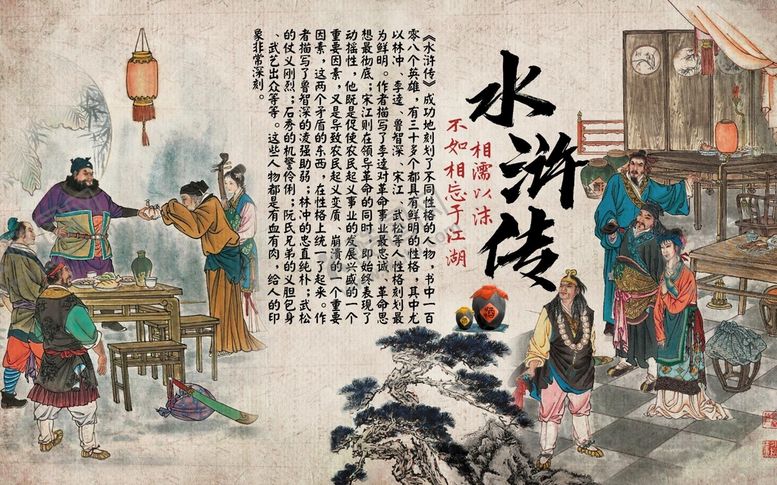 水浒传
相濡以沫
不如相忘于江湖
《水浒传》成功地刻划了不同性格的人物,书中一百
零八个英雄,有三十多个都具有鲜明的性格,其中尤
以林冲、李逵、鲁智深、宋江、武松等人性格刻划最
为鲜明。作者描写了李逵对革命事业最忠诚、革命思
想最彻底;宋江则在领导革命的同时,即始终表现了
动摇性,他既是促使农民起义事业的发展兴盛的一个
重要因素,又是导致农民起义变质、崩溃的一个重要
因素,这两个矛盾的东西,在性格上统一了起来。作
者描写了鲁智深的凌强助弱;林冲的忠直纯朴;武松
的仗义刚烈;石秀的机警伶俐;阮氏兄弟的义胆包身
、武艺出众等等。这些人物都是有血有肉,给人的印
象非常深刻。